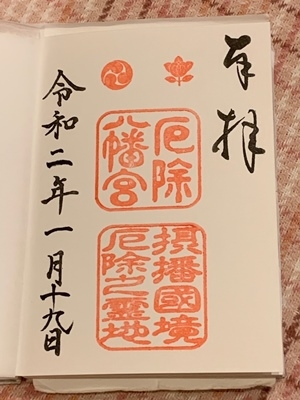 奉拝
厄除
八幡宮
摂播國境
厄除之霊地
令和二年一月十九日